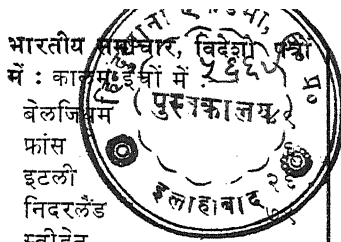 भारतीय समाचार, विदेशी पत्रों
में : कालम इंचों में
बेलजियम
फ्रांस
इटली
निदरलैंड
स्वीडेन
पुस्तकालय
इलाहाबाद